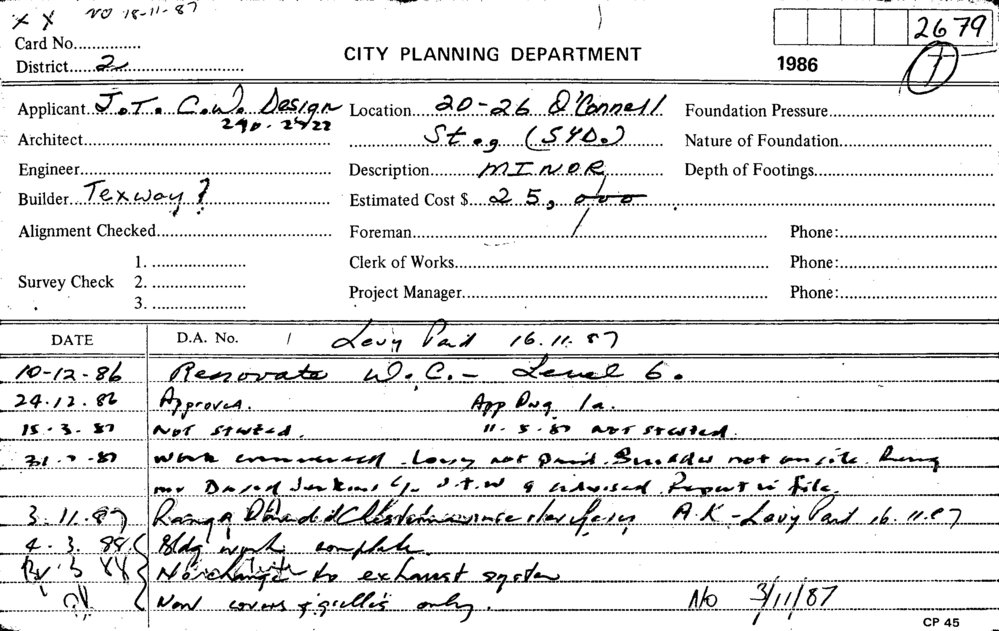 X X NO 18-11-87
2679
Card No..............
CITY PLANNING DEPARTMENT
District.....2
1986
Applicant. J.T. C.W. Design
Location....20-26 O'Connell
Foundation Pressure
290-2422
Architect
St.,g (SYD.)
Nature of Foundation
Engineer
Description........MINOR
Depth of Footings
Builder...Texway ?
Estimated Cost $...25,000
Alignment Checked
Foreman
Phone:
1.
Clerk of Works
Phone:
Survey Check 2.
Project Manager
Phone:
3.
DATE D.A. No. / Levy Paid 16.11.87
10-12-86 Renovate W.C. - Level 6.
24.12.86 Approved. App Dwg 1a.
15-3-87 Not started. 11-5-87 not started.
31-7-87 Work commenced. Levy not paid. Builder not on site. Rang
mr David Jenkins J.T.W & advised. Report in file.
3.11.87 Rang David A.K - Levy Paid 16.11.87
4-3.88 Bldg work complete.
3 88 No change to exhaust system
New covers & grilles only. N/O 3/11/87
CP 45